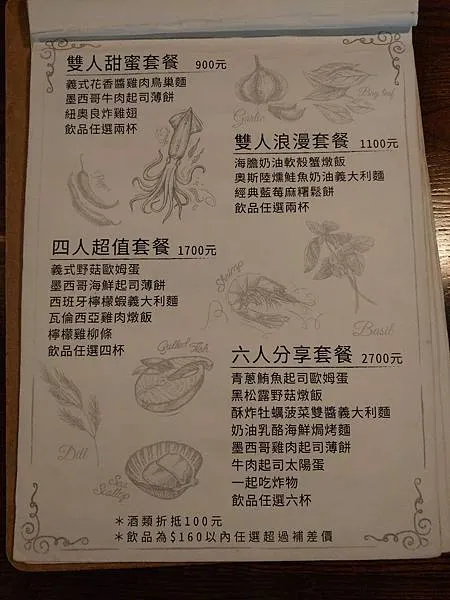 雙人甜蜜套餐 900元
義式花香醬雞肉鳥巢麵
墨西哥牛肉起司薄餅
紐奧良炸雞翅
飲品任選兩杯
Garlic
Bay leaf
雙人浪漫套餐 1100元
海膽奶油軟殼蟹燉飯
奧斯陸燻鮭魚奶油義大利麵
經典藍莓麻糬鬆餅
飲品任選兩杯
四人超值套餐 1700元
義式野菇歐姆蛋
墨西哥海鮮起司薄餅
西班牙檸檬蝦義大利麵
瓦倫西亞雞肉燉飯
檸檬雞柳條
飲品任選四杯
Shrimp
Basil
Grilled Fish
六人分享套餐 2700元
青蔥鮪魚起司歐姆蛋
黑松露野菇燉飯
酥炸牡蠣菠菜雙醬義大利麵
奶油乳酪海鮮焗烤麵
墨西哥雞肉起司薄餅
牛肉起司太陽蛋
一起吃炸物
飲品任選六杯
Dill
Sea Scallop
＊酒類折抵100元
＊飲品為$160以內任選超過補差價